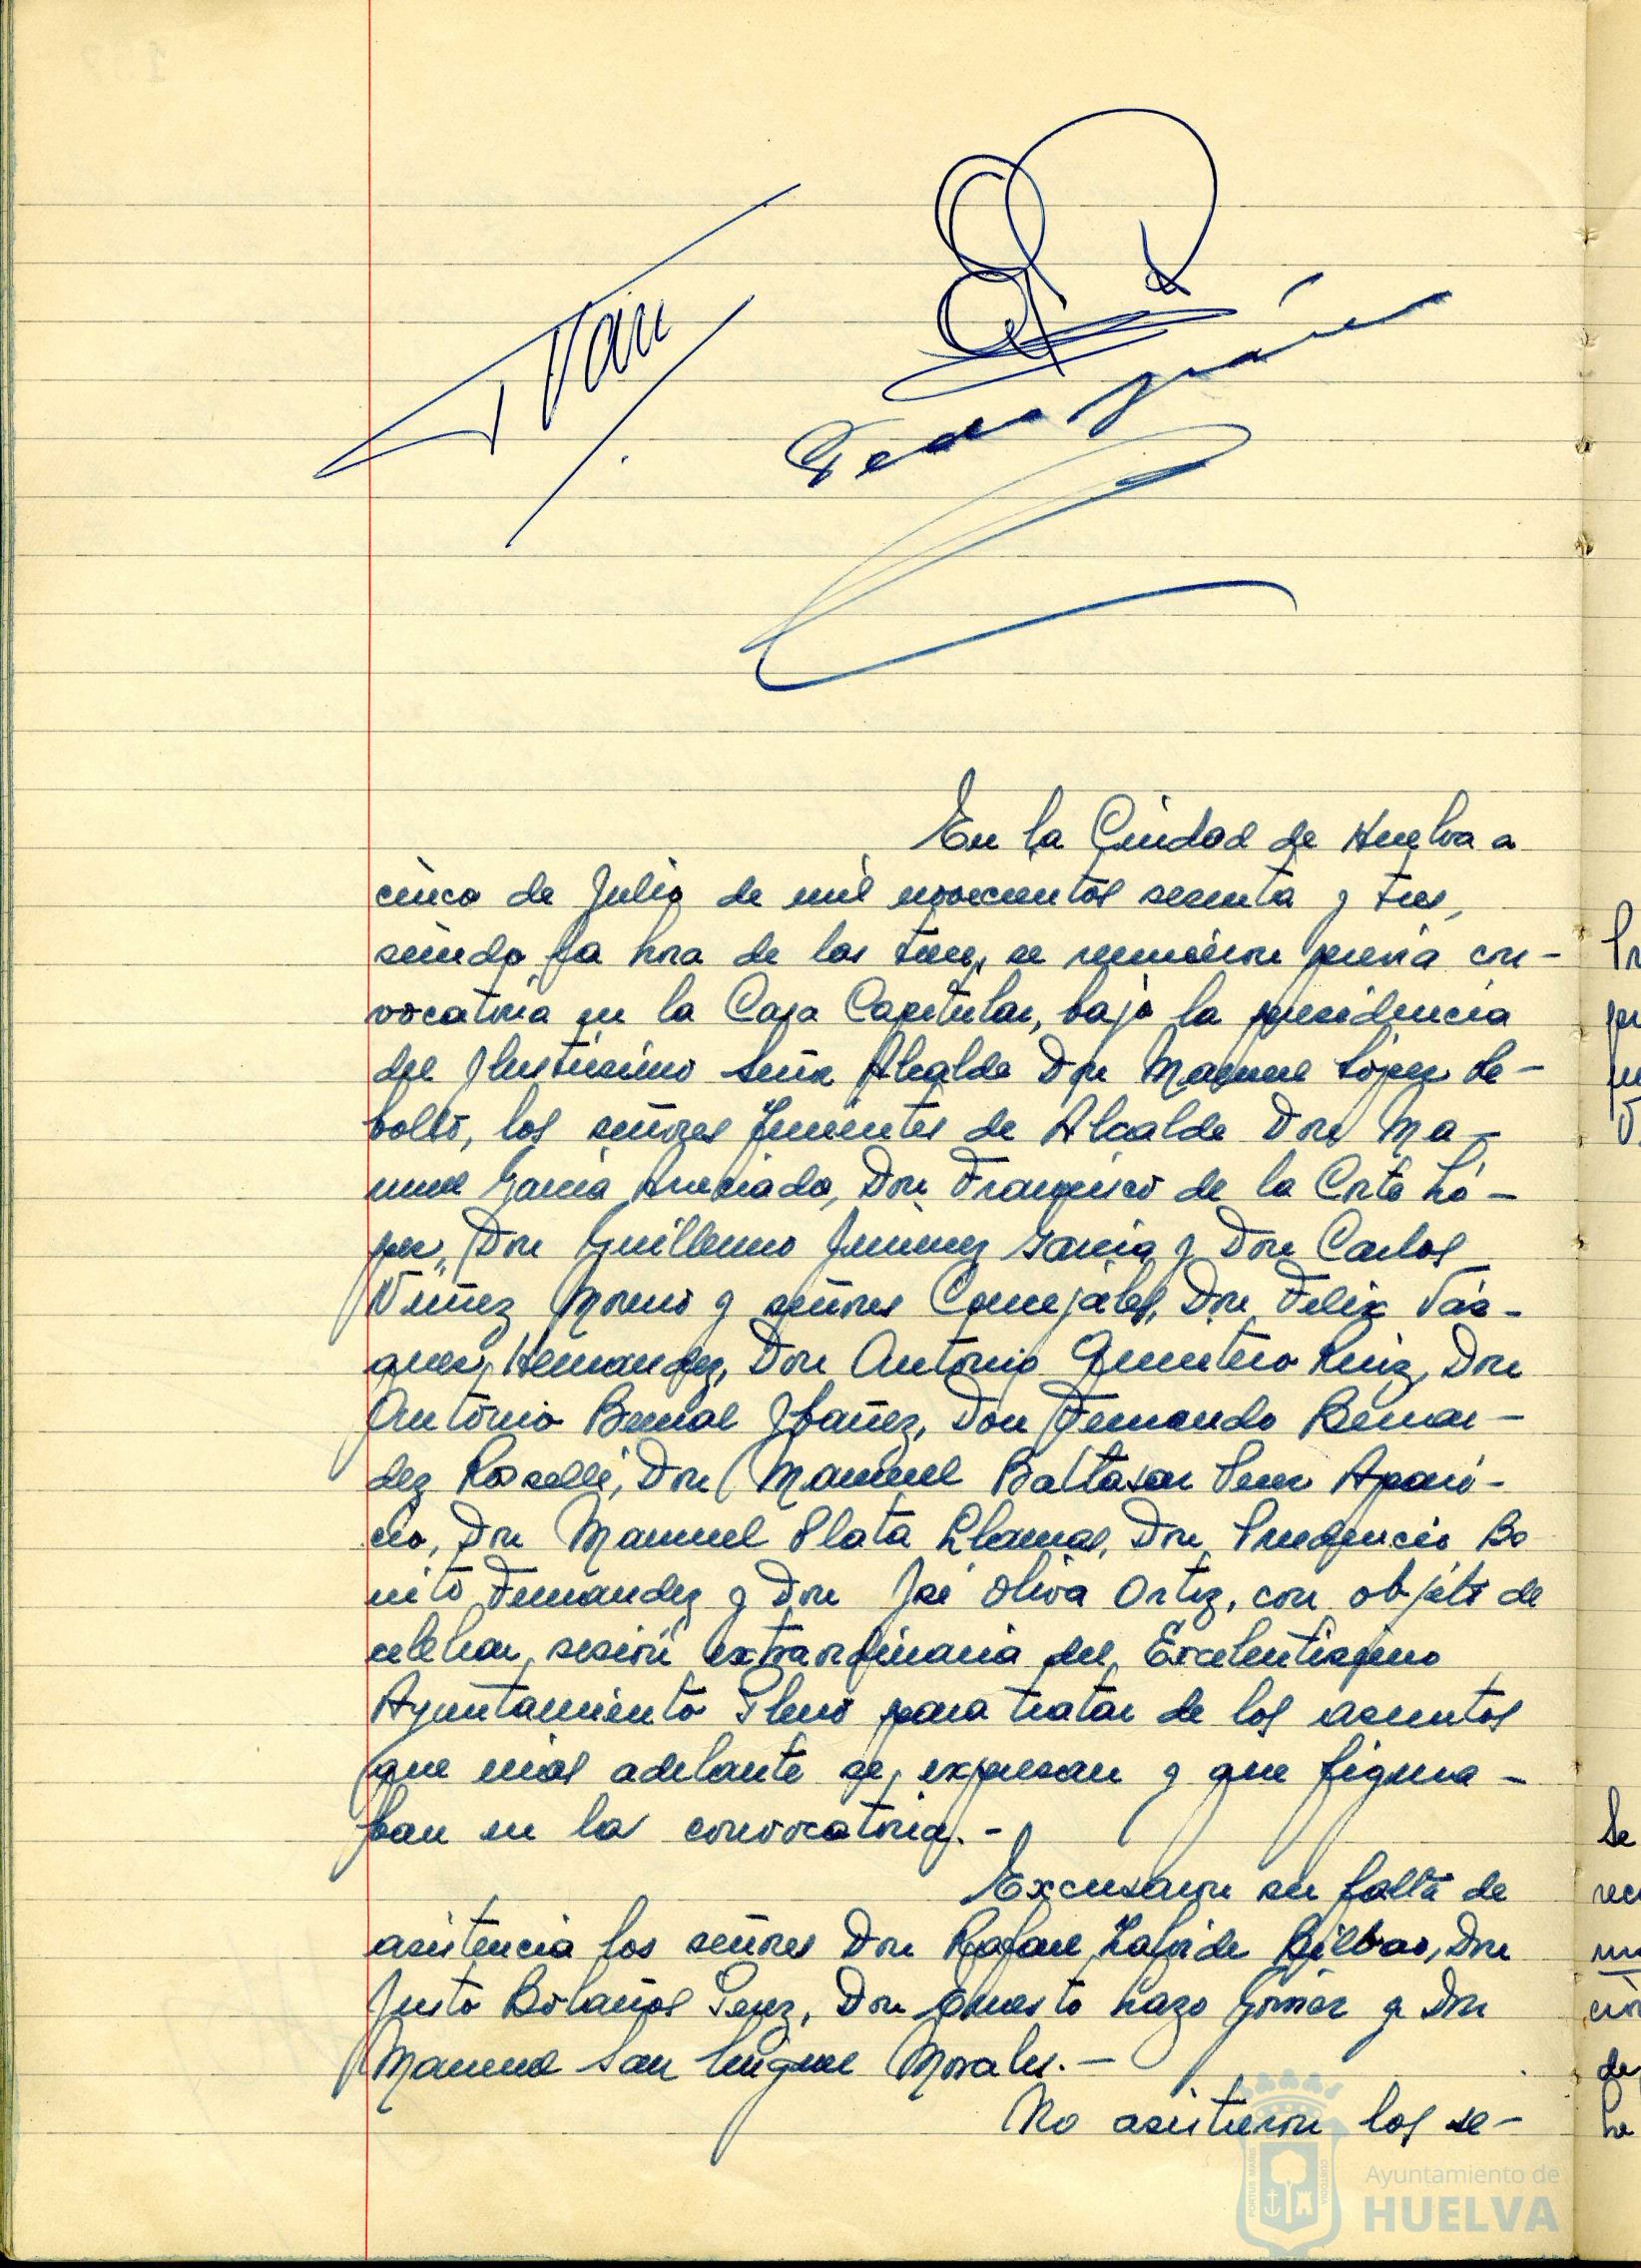 En la Ciudad de Huelva a
cinco de Julio de mil novecientos sesenta y tres,
siendo la hora de las trece, se reunieron previa con-
vocatoria en la Casa Capitular, bajo la presidencia
del Ilustrisimo Señor Alcalde Don Manuel López Re-
bollo, los señores Tenientes de Alcalde Don Ma-
nuel Garcia Don Francisco de la Corte Ló-
pez, Don Guillermo Jimenez Garcia y Don Carlos
Núñez Moreno y señores Concejales, Don Felix Váz-
quez Hernandez, Don Antonio Quintero Ruiz, Don
Antonio Bernal Ibañez, Don Fernando Bernar-
dez Roselli, Don Manuel Baltasar Apari-
cio, Don Manuel Plata Llamas, Don Prudencio Bo
nito Fernandez y Don José Oliva Ortiz, con objeto de
celebrar sesión extraordinaria del Excelentisimo
Ayuntamiento Pleno para tratar de los asuntos
que más adelante se expresan y que figura-
ban en la convocatoria.-
Excusaron su falta de
asistencia los señores Don Rafael Bilbao, Don
Justo Bolaños Perez, Don Ernesto Lazo Gomez y Don
Manuel San Miguel Morales.-
No asistieron los se-
Ayuntamiento de
HUELVA